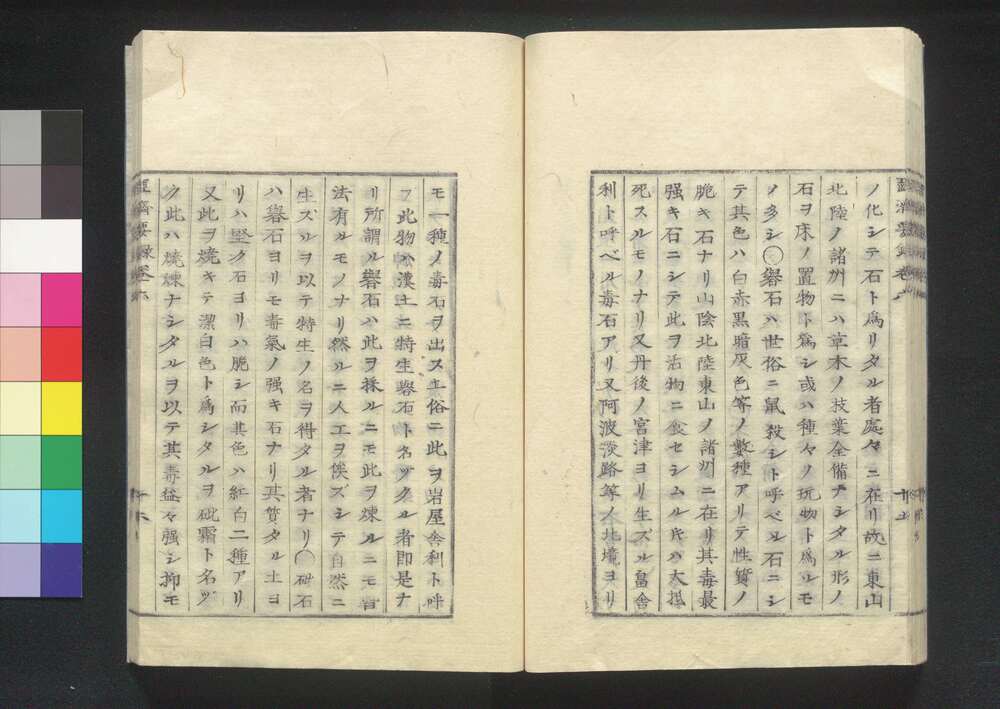 ノ化シテ石ト爲リタル者處々ニ在リ故ニ東山
北陸ノ諸州ニハ草木ノ枝葉全備ナシタル形ノ
石ヲ床ノ置物ト爲シ或ハ種々ノ玩物ト爲ルモ
ノ多シ〇礜石ハ世俗ニ鼠殺シト呼ベル石ニシ
テ其色ハ白赤黒暗灰色等ノ數種アリテ性質ノ
脆キ石ナリ山陰北陸東山ノ諸州ニ在リ其毒最
强キ石ニシテ此ヲ活物ニ食セシムル氏ハ大抵
死スルモノナリ又丹後ノ宮津ヨリ生ズル畠舎
利ト呼ベル毒石アリ又阿波淡路等ノ北境ヨリ
モ一種ノ毒石ヲ出ス土俗ニ此ヲ岩屋舎利ト呼
フ此物ハ漢土ニ特生礜石トネヅクル者即是ナ
リ所謂ル礜石ハ此ヲ採ルニモ此ヲ煉ルニモ皆
法有ルモノナリ然ルニ人工ヲ俟ズシテ自然ニ
生ズルヲ以テ特生ノ名ヲ得タル者ナリ〇砒石
ハ礜石ヨリモ毒氣ノ强キ石ナリ其質タル土ヨ
リハ堅ク石ヨリハ脆シ而其色ハ紅白二種アリ
又此ヲ燒キテ潔白色ト爲シタルヲ砒霜ト名ヅ
ク此ハ燒煉ナシタルヲ以テ其毒益々强シ抑モ